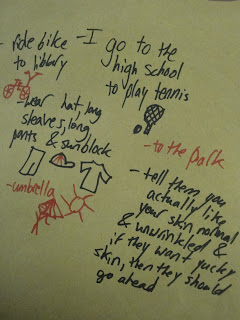 - ride bike
to library
- wear hat, long
sleaves, long
pants & sunblock
- umbrella
- I go to the
high school
to play tennis
- to the park
- tell them you
actually like
your skin normal
& unwrinkled &
if they want yucky
skin, then they should
go ahead